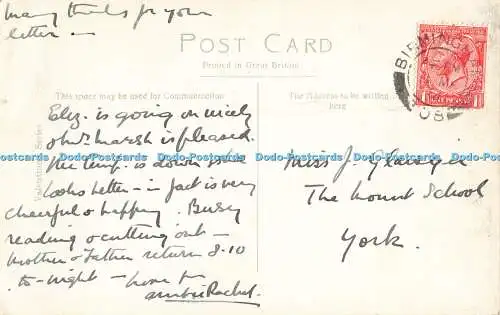 many thanks for your
letter —
POST CARD
Printed in Great Britain
This space may be used for Communication
The Address to be written
here
Valentines Series
BIRMINGH
08
Eliz. is going on nicely
& Mr. Marsh is pleased.
Her temp. is down, & she
looks better — in fact is very
cheerful & happy. Busy
reading & cutting out —
Mother & Father return 8-10
to-night — love fr
Rachel.
Miss J.
The Mount School
York.
Dodo-Postcards Dodo-Postcards Dodo-Postcards Dodo-Postcards Dodo-Postcards Dodo-Postcards